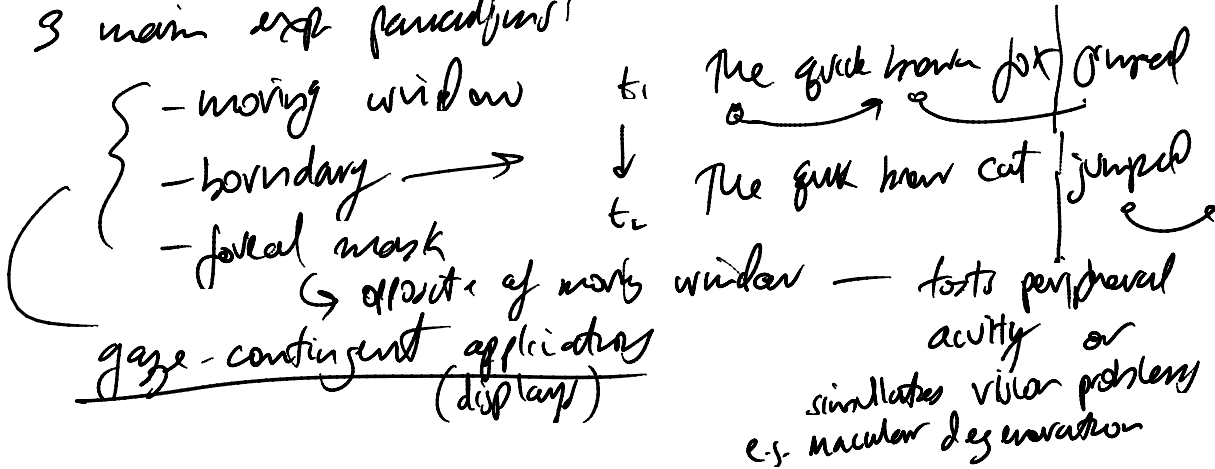 3 main exp paradigms:
- moving window
- boundary →
- foveal mask
↳ opposite of moving window — tests peripheral
acuity or
simullates vision problems
e.g. macular degeneration
gaze-contingent applications
(displays)
t₁ The quick brown fox jumped
↓
t₂ The quick brown cat jumped